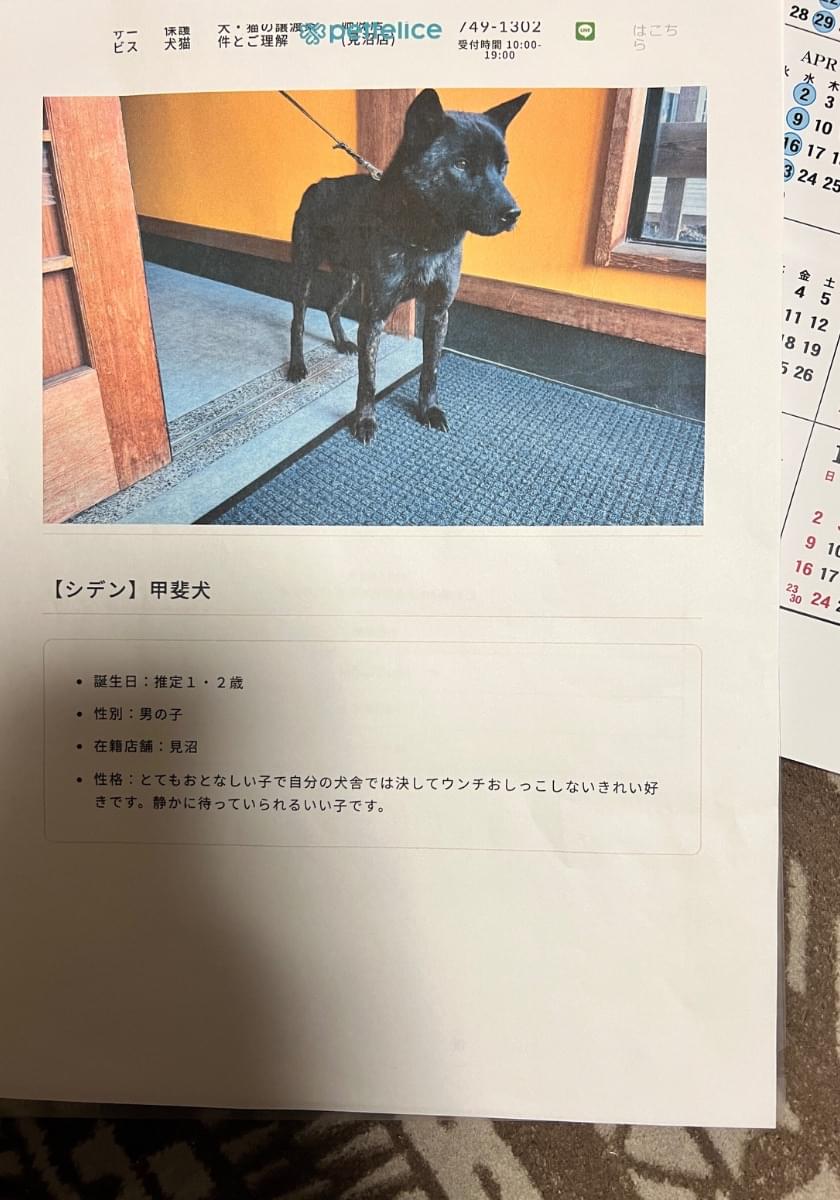 サー
ビス
保護
犬猫
犬・猫の譲渡条
件とご理解
petfelice
(見沼店)
749-1302
受付時間 10:00-
19:00
LINE
はこち
ら
【シデン】甲斐犬
• 誕生日：推定１・２歳
• 性別：男の子
• 在籍店舗：見沼
• 性格：とてもおとなしい子で自分の犬舎では決してウンチおしっこしないきれい好
きです。静かに待っていられるいい子です。
28 29
APR
水 木
2 3
9 10
16 17
24 25
金 土
4 5
11 12
18 19
26
日
2
9 10
16 17
23
30 24